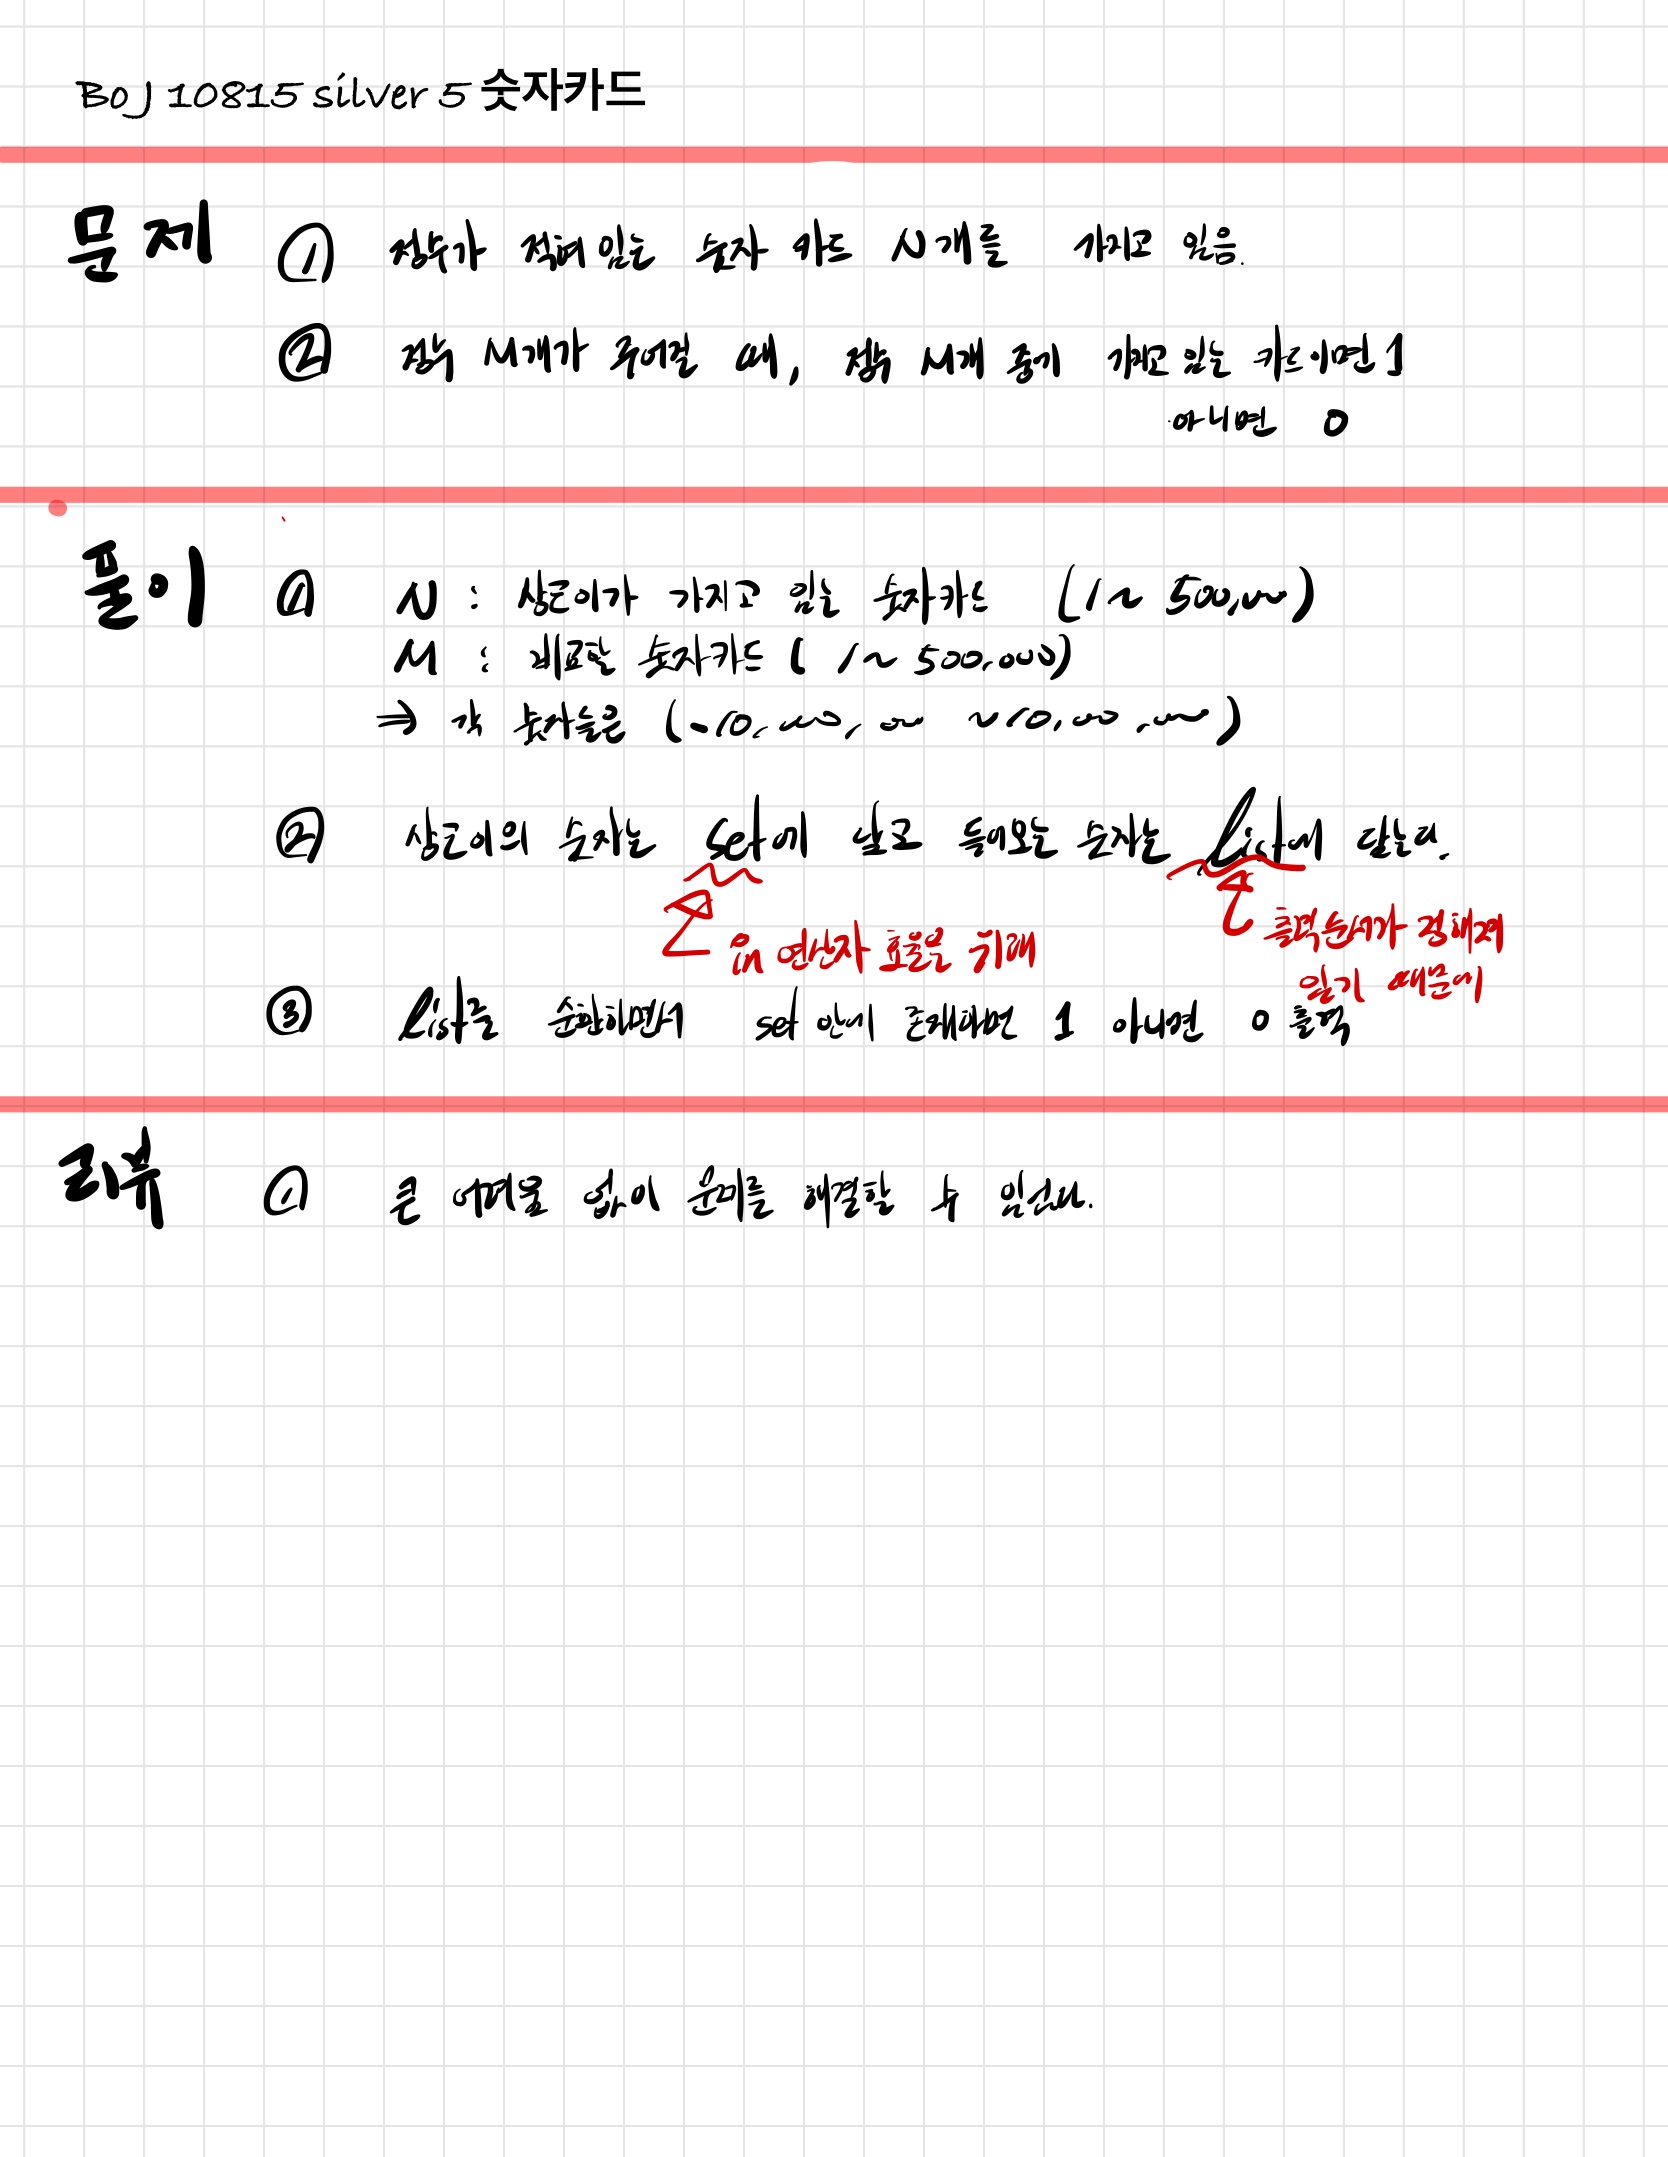 BoJ 10815 silver 5 숫자카드
문제 ① 정수가 적혀있는 숫자 카드 N개를 가지고 있음.
② 정수 M개가 주어질 때, 정수 M개 중에 가지고 있는 카드이면 1
아니면 0
풀이 ① N : 상근이가 가지고 있는 숫자카드 (1 ~ 500,000)
M : 비교할 숫자카드 ( 1 ~ 500,000)
⇒ 각 숫자들은 (-10,000,000 ~ 10,000,000)
② 상근이의 숫자는 set에 넣고 들어오는 숫자는 list에 담는다.
in 연산자 효율을 위해
출력순서가 정해져
있기 때문에
③ list를 순환하면서 set 안에 존재하면 1 아니면 0 출력
리뷰 ① 큰 어려움 없이 문제를 해결할 수 있었다.